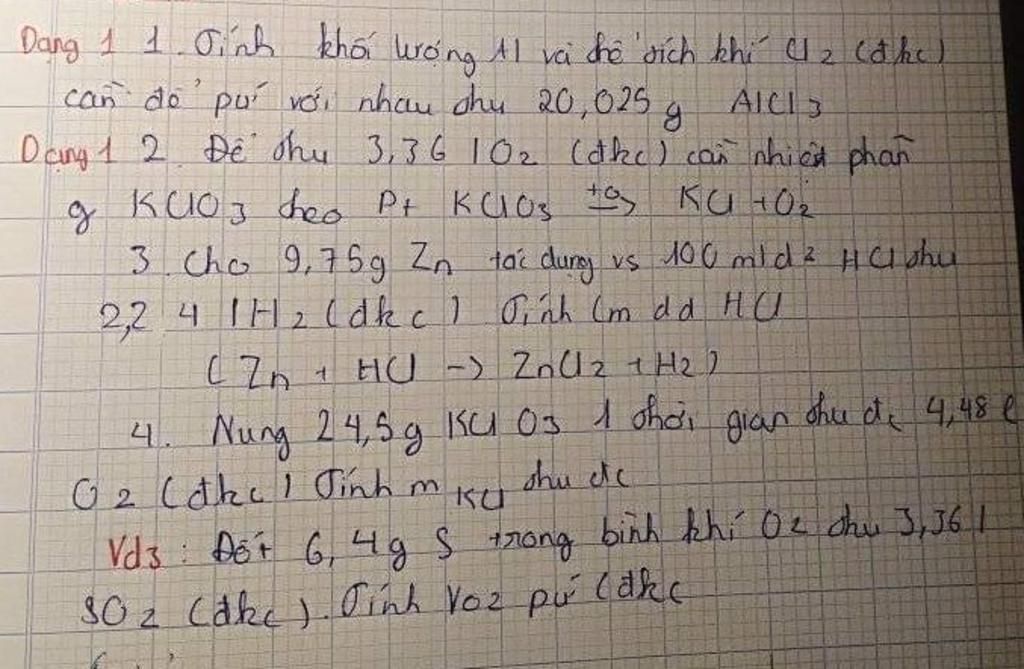 Dạng 1 1. Tính khối lượng Al và thể tích khí Cl2 (đkc)
cần để pứ với nhau thu 20,025 g AlCl3
Dạng 1 2. Để thu 3,36 l O2 (đkc) cần nhiệt phân
g KClO3 theo Pt KClO3 +o→ KCl + O2
3. Cho 9,75g Zn tác dụng vs 100 ml d2 HCl thu
2,24 l H2 (đkc) Tính Cm dd HCl
(Zn + HCl -> ZnCl2 + H2)
4. Nung 24,5g KClO3 1 thời gian thu đc 4,48 l
O2 (đkc) Tính mKCl thu đc
Vd3: Đốt 6,4g S trong bình khí O2 thu 3,36 l
SO2 (đkc). Tính VO2 pứ (đkc